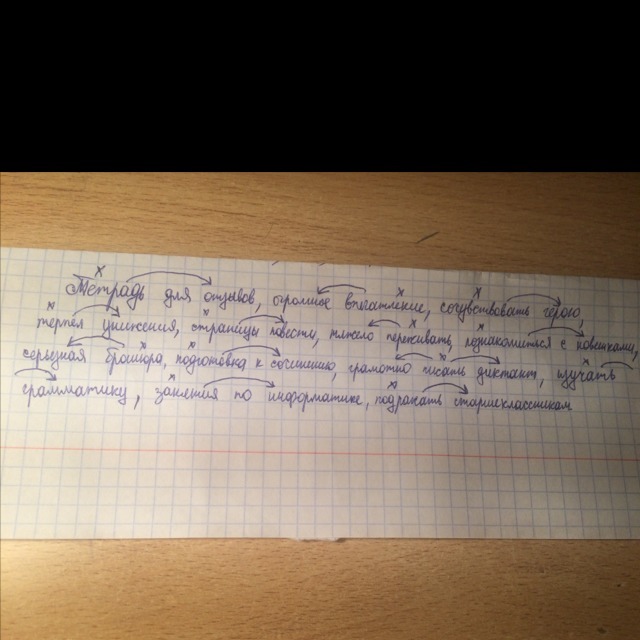 Тетрадь для отзывов, огромное впечатление, сочувствовать герою,
терпел унижения, страницы повести, тяжело переживать, познакомиться с новинками,
серьезная брошюра, подготовка к сочинению, грамотно писать диктант, изучать
грамматику, занятия по информатике, подражать старшеклассникам